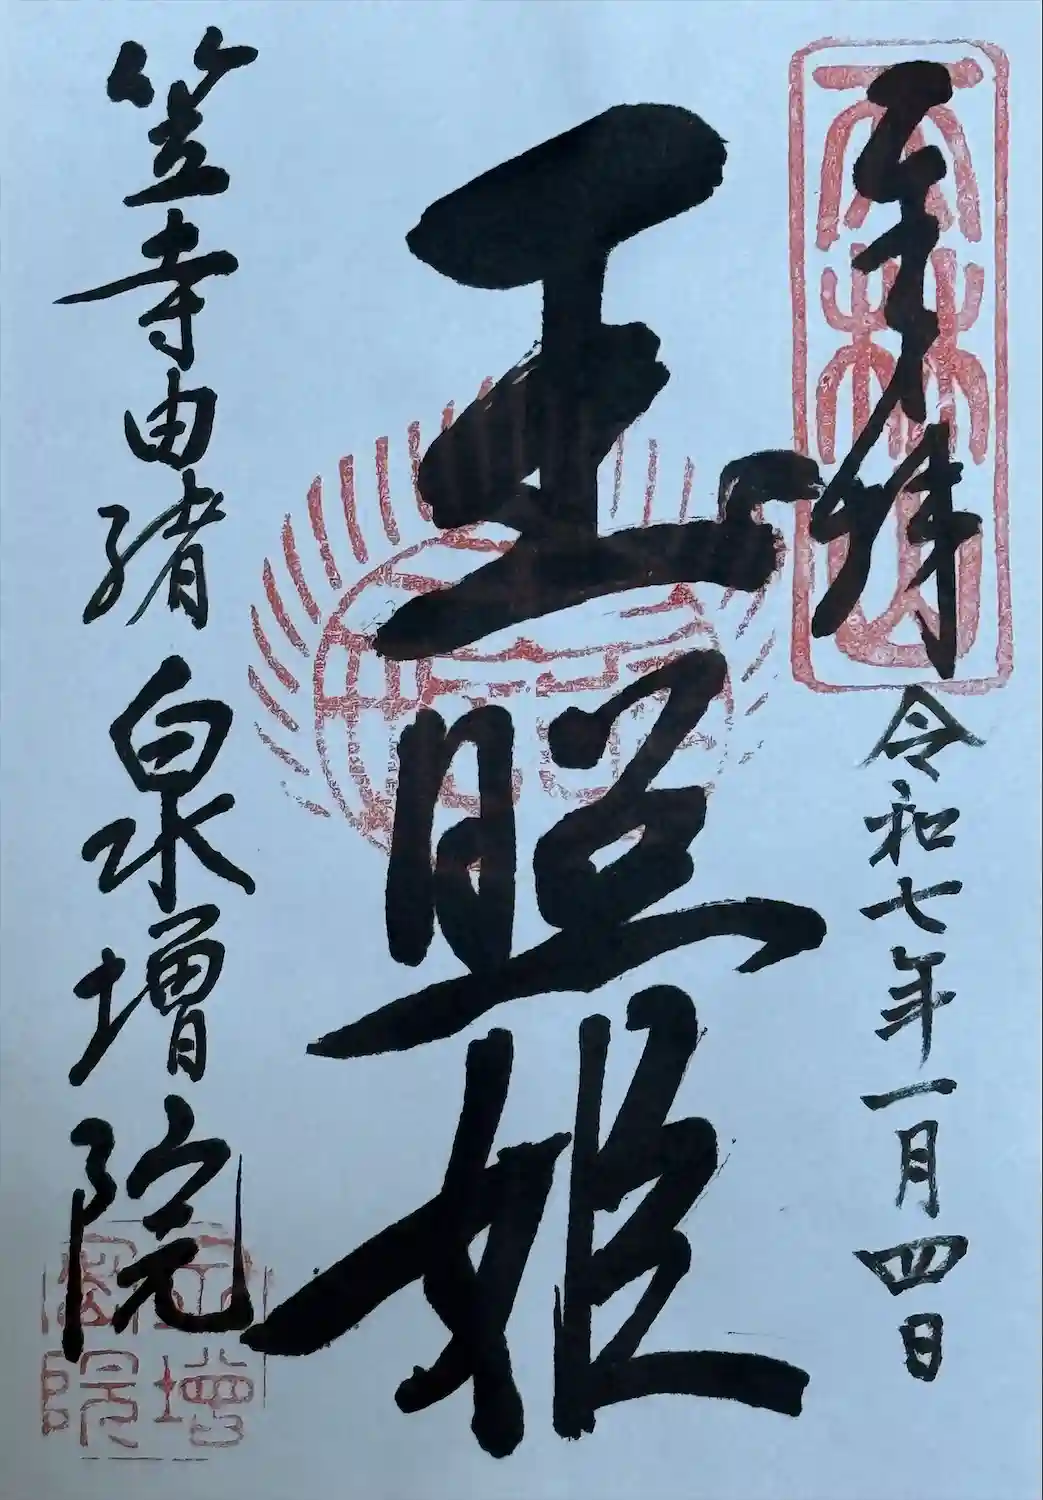 天林山
奉拝 令和七年一月四日
玉照姫
笠寺由緒 泉増院